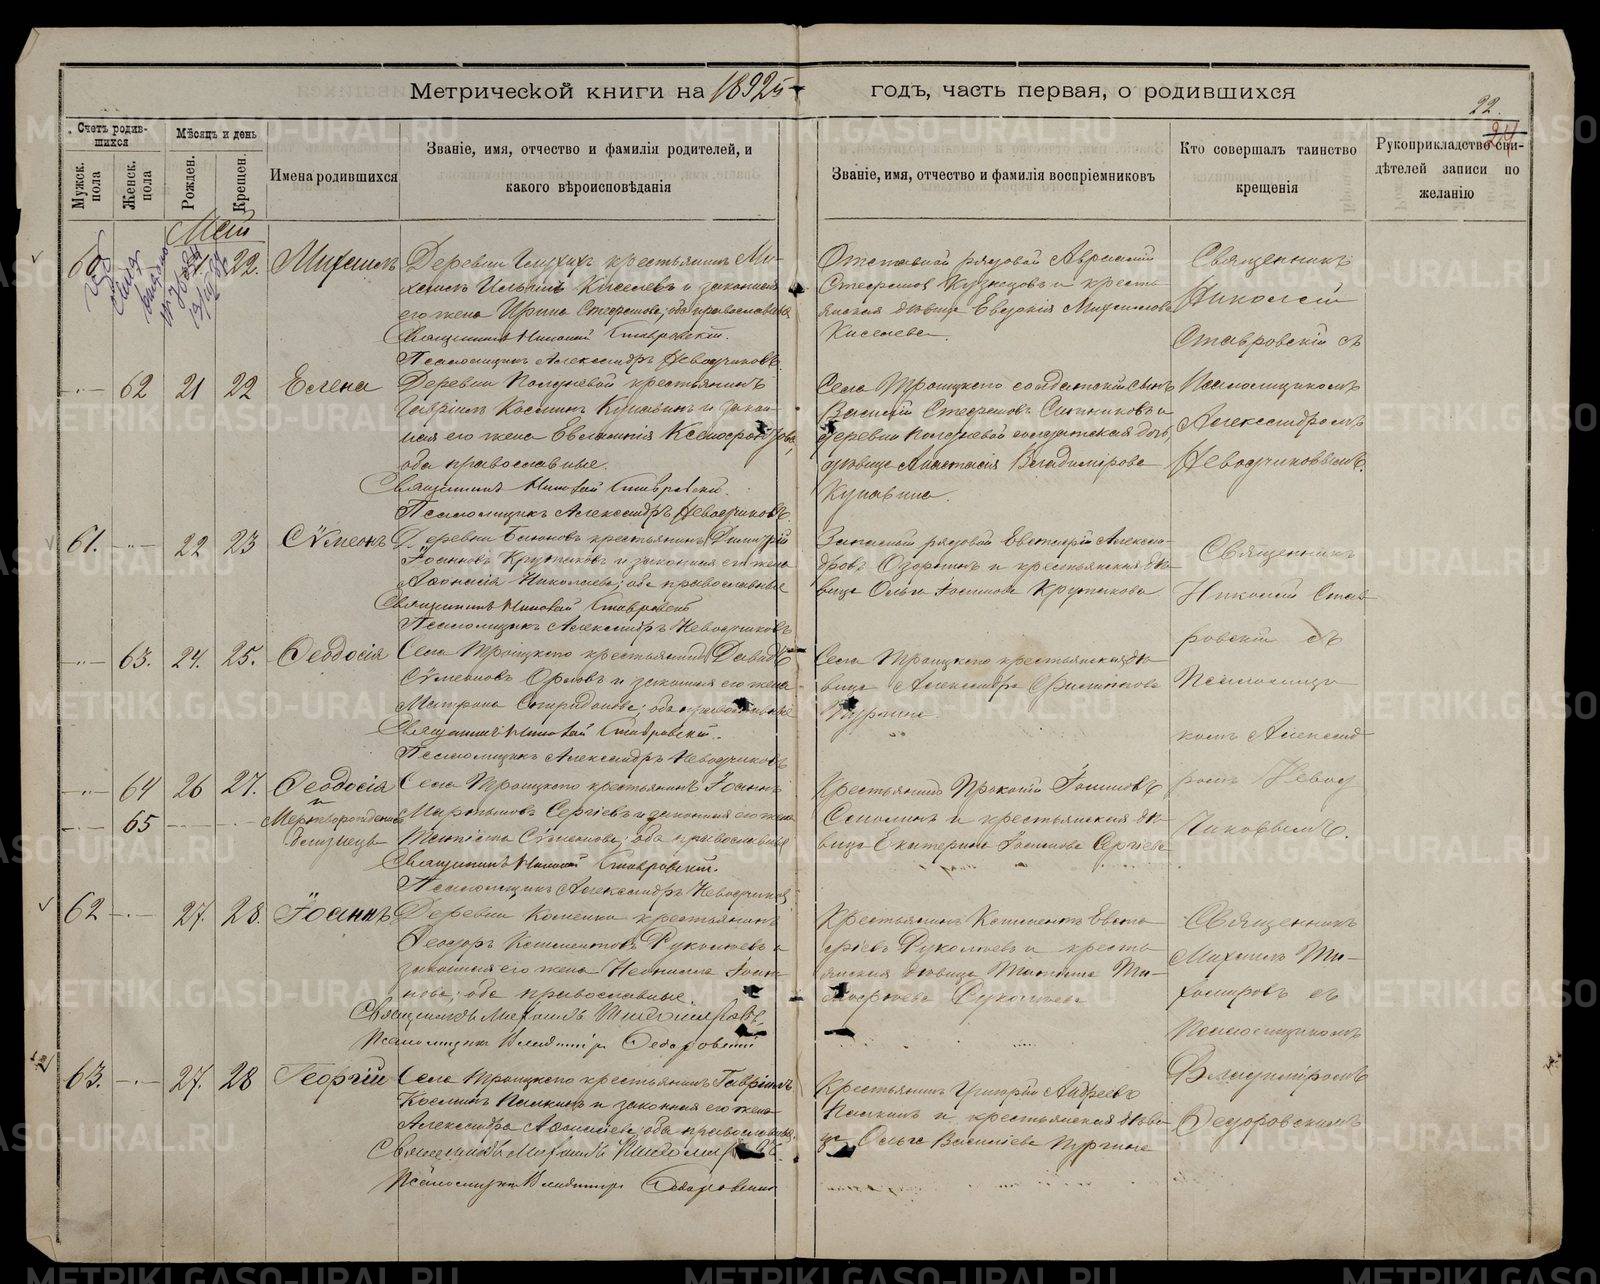 Метрической книги на 1892й годъ, часть первая, о родившихся
22.
24
Счетъ родив-
шихся
Мѣсяцъ и день
Мужск. пола
Женск. пола
Рожден.
Крещен.
Имена родившихся
Званіе, имя, отчество и фамилія родителей, и
какого вѣроисповѣданія
Званіе, имя, отчество и фамилія воспріемниковъ
Кто совершалъ таинство
крещенія
Рукоприкладство сви-
дѣтелей записи по
желанію
Май
60
22.
Михаилъ
Деревни крестьянинъ Ми-
хаилъ Ильинъ Киселевъ и законная
его жена Ирина Стефанова; оба православные
Священникъ Николай Ставровскій.
Псаломщикъ Александръ Неводчиковъ.
Отставной рядовой
Стефановъ Кузнецовъ и кресть-
янская дѣвица Евдокія Михаилова
Киселева.
Священникъ
Николай
Ставровскій съ
Псаломщикомъ
Александромъ
Неводчиковымъ.
62
21
22
Елена
Деревни Полдневой крестьянинъ
Гавріилъ Космин Кунавинъ и закон-
ная его жена Евлампія Ксенофонтова,
оба православные.
Священникъ Николай Ставровскій.
Псаломщикъ Александръ Неводчиковъ.
Села Троицкого солдатскій сынъ
Василій Стефановъ Ситниковъ и
деревни Полдневой солдатская дочь
дѣвица Анастасія Владимірова
Кунавина.
61.
22
23
Сѵмеонъ
Деревни крестьянинъ Димитрій
Іоанновъ Крутиковъ и законная его жена
Аѳанасія Николаева; оба православные
Священникъ Николай Ставровскій
Псаломщикъ Александръ Неводчиковъ
Запасный рядовой Евстафій Алексан-
дровъ и крестьянская дѣ-
вица Ольга Крутикова
Священникъ
Николай Став-
ровскій съ
Псаломщи-
комъ Александ-
ромъ Невод-
чиковымъ.
63.
24.
25.
Ѳеодосія
Села Троицкого крестьянинъ Давидъ
Сѵмеоновъ Орловъ и законная его жена
Матрона Спиридонова; оба православные
Священникъ Николай Ставровскій.
Псаломщикъ Александръ Неводчиковъ
Села Троицкого крестьянская дѣ-
вица Александра Филиппова
Пургина.
64
26
27.
Ѳеодосія
и
65
Мертворожденный
близнецъ
Села Троицкого крестьянинъ Іоаннъ
Мартыновъ Сергѣевъ и законная его жена
Татіана Сѵмеонова; оба православные
Священникъ Николай Ставровскій.
Псаломщикъ Александръ Неводчиковъ
Крестьянинъ Прокопій
и крестьянская дѣ-
вица Екатерина Сергѣева
62
27.
28.
Іоаннъ
Деревни Каменки крестьянинъ
Ѳеодоръ Климентовъ Рукомоевъ и
законная его жена Неонилла Іоан-
нова; оба православные.
Священникъ Михаилъ Тихомировъ.
Псаломщикъ Владиміръ Ѳедоровскій
Крестьянинъ Климентъ Евста-
фіевъ и кресть-
янская дѣвица Татіана Ти-
моѳеева
Священникъ
Михаилъ Ти-
хомировъ съ
Псаломщикомъ
Владиміромъ
Ѳедоровскимъ
63.
27.
28
Георгій
Села Троицкого крестьянинъ Гавріилъ
Косминъ Палкинъ и законная его жена
Александра Аѳанасіева, оба православные.
Священникъ Михаилъ Тихомировъ.
Псаломщикъ Владиміръ Ѳедоровскій
Крестьянинъ Григорій Андреевъ
Палкинъ и крестьянская дѣви-
ца Ольга Василіева Пургина
METRIKI.GASO-URAL.RU